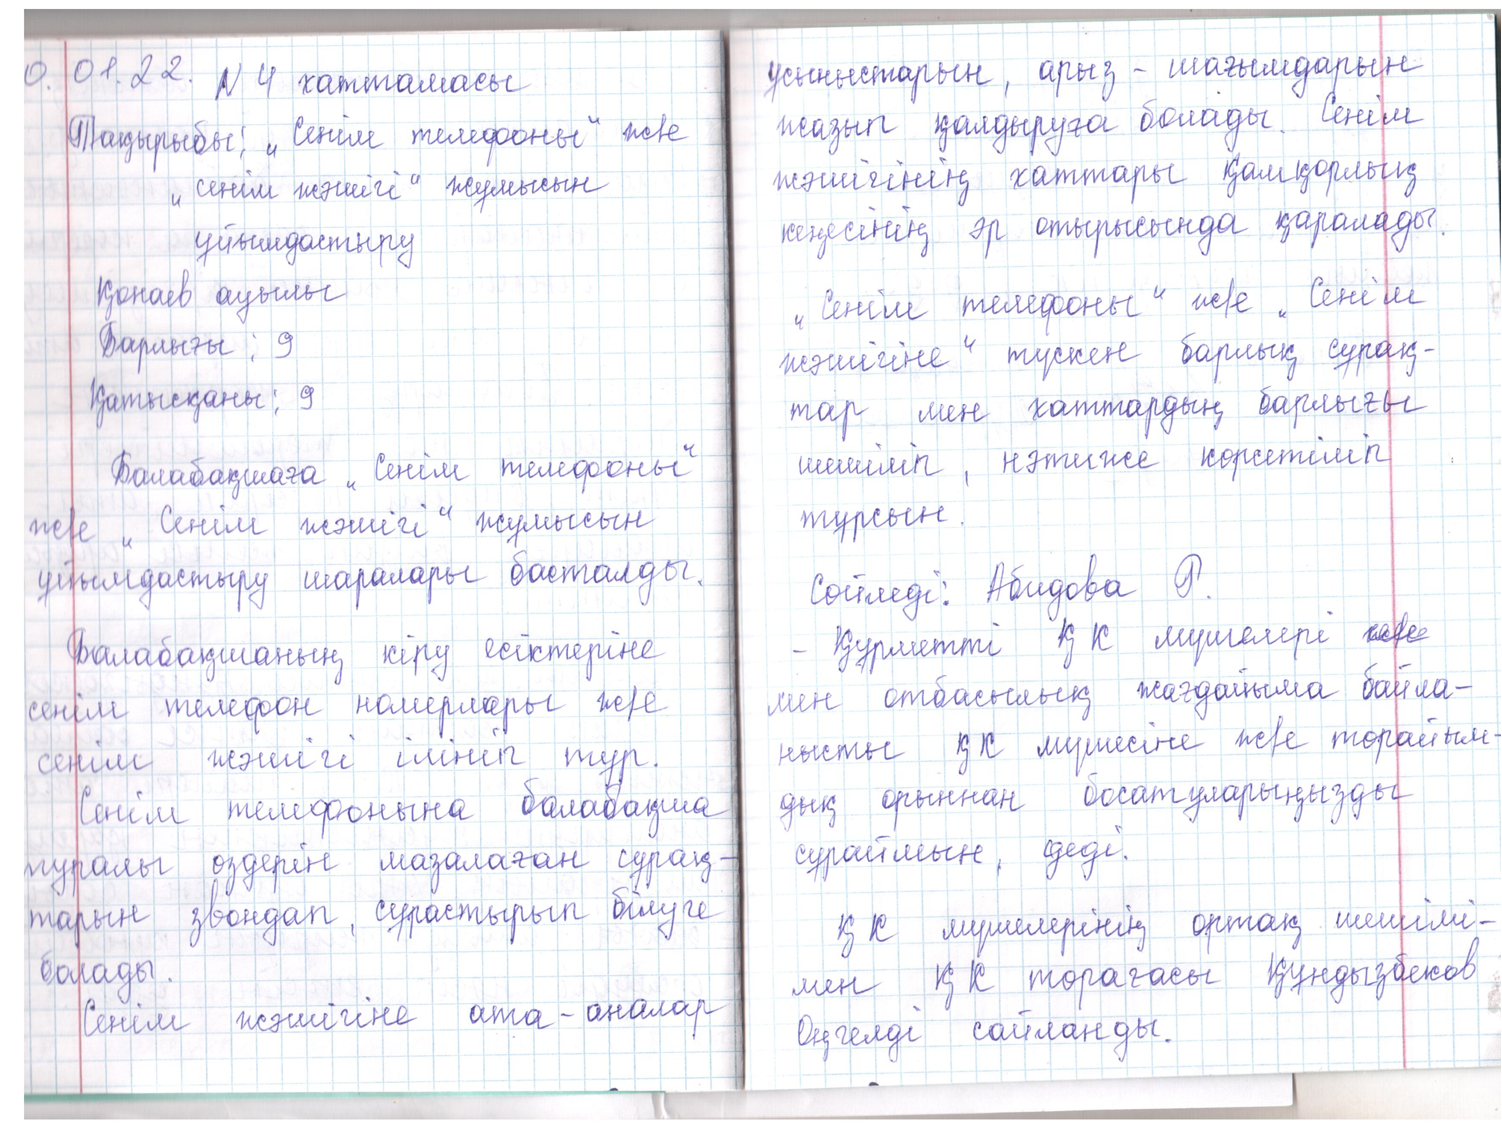 0. 01.22. N 4 хаттамасы
Тақырыбы: „Сенім телефоны“ ж/е
„сенім жәшігі“ жұмысын
ұйымдастыру
Қонаев ауылы
Барлығы: 9
Қатысқаны: 9
Балабақшаға „Сенім телефоны“
ж/е „Сенім жәшігі“ жұмысын
ұйымдастыру шаралары басталды.
Балабақшаның кіру есіктеріне
сенім телефон номерлары ж/е
сенім жәшігі ілініп тұр.
Сенім телефонына балабақша
туралы өздерін мазалаған сұрақ-
тарын звондап, сұрастырып білуге
болады.
Сенім жәшігіне ата-аналар
ұсыныстарын, арыз-шағымдарын
жазып қалдыруға болады. Сенім
жәшігінің хаттары қамқорлық
кеңесінің әр отырысында қаралады.
„Сенім телефоны“ ж/е „Сенім
жәшігіне“ түскен барлық сұрақ-
тар мен хаттардың барлығы
шешіліп, нәтиже көрсетіліп
тұрсын.
Сөйледі: Абидова Р.
- Құрметті ҚК мүшелері
мен отбасылық жағдайыма байла-
нысты ҚК мүшесіне ж/е төрайым-
дық орыннан босатуларыңызды
сұраймын, деді.
ҚК мүшелерінің ортақ шешімі-
мен ҚК төрағасы Құндызбеков
Оңгелді сайланды.